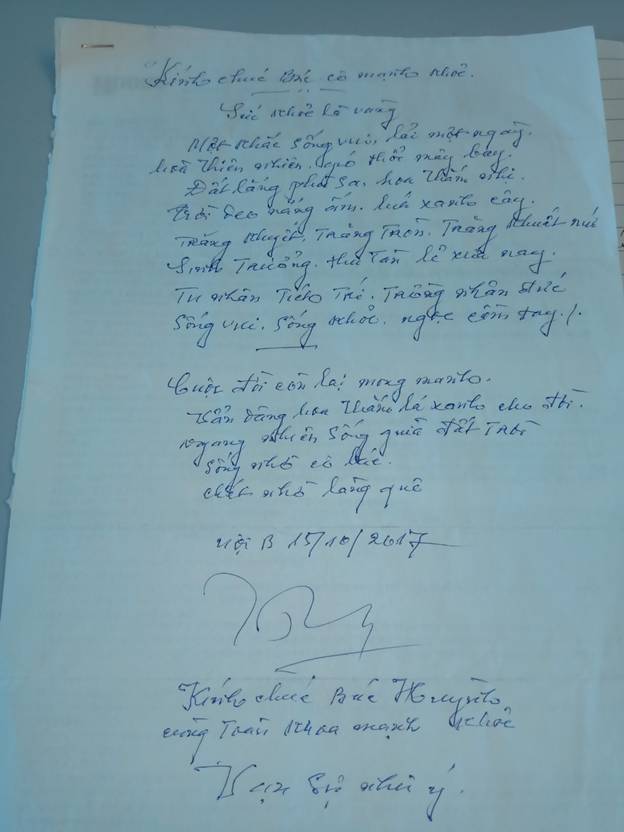 Kính chúc Bác cô mạnh khoẻ.
Sức khoẻ là vàng
Một khắc sống vui, lãi một ngày.
hoà thiên nhiên, gió thổi mây bay.
Đất lặng phù sa, hoa thắm nhị
Trời deo nắng ấm. luá xanh cây.
Trăng khuyết, Trăng Tròn. Trăng khuất núi
Sinh Trưởng. thu tàn lẽ xưa nay.
Tu nhân Tích Trí. Trồng nhân đức
Sống vui. Sống khoẻ. ngọc cầm tay./.
Cuộc đời còn lại mong manh.
Vẫn dâng hoa thắm lá xanh cho đời.
ngang nhiên sống giữa đất Trời
Sống nhờ cô bác.
chết nhờ làng quê
nội B 15/10/2017
Kính chúc Bác Huynh
cùng Toàn khoa mạnh khoẻ
Vạn sự như ý.